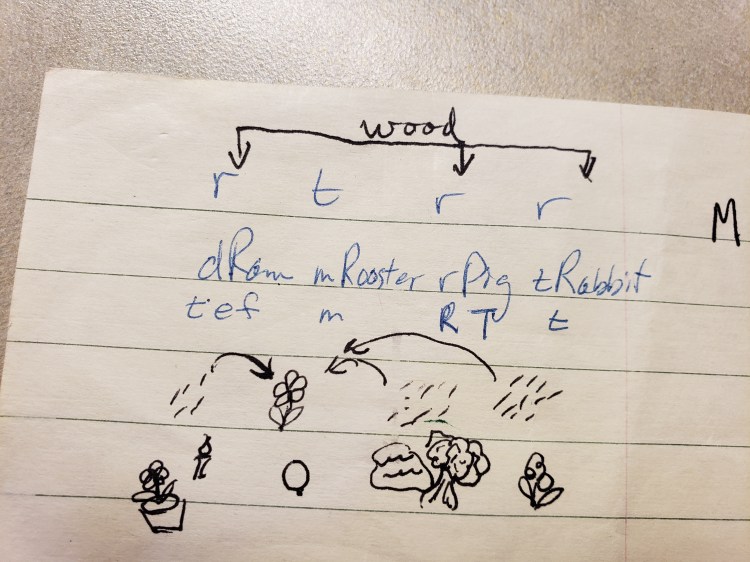 wood
r t r r M
dRam mRooster rPig tRabbit
t e f m R T t